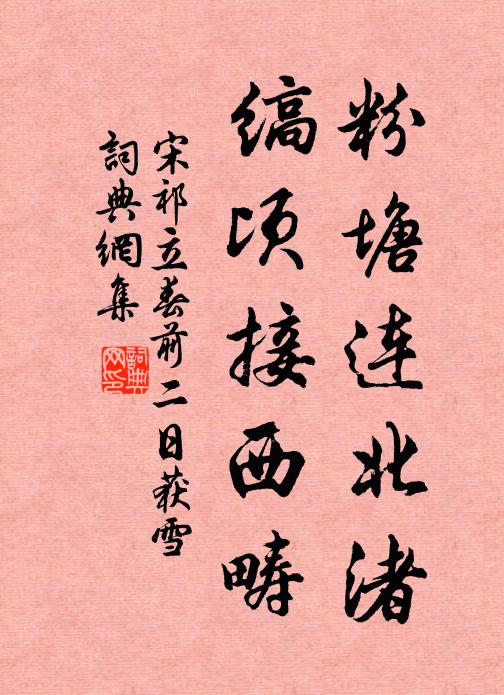 粉塘连北渚
缟顷接西畴
宋祁立春前二日获雪
詞典網集
詞典网印